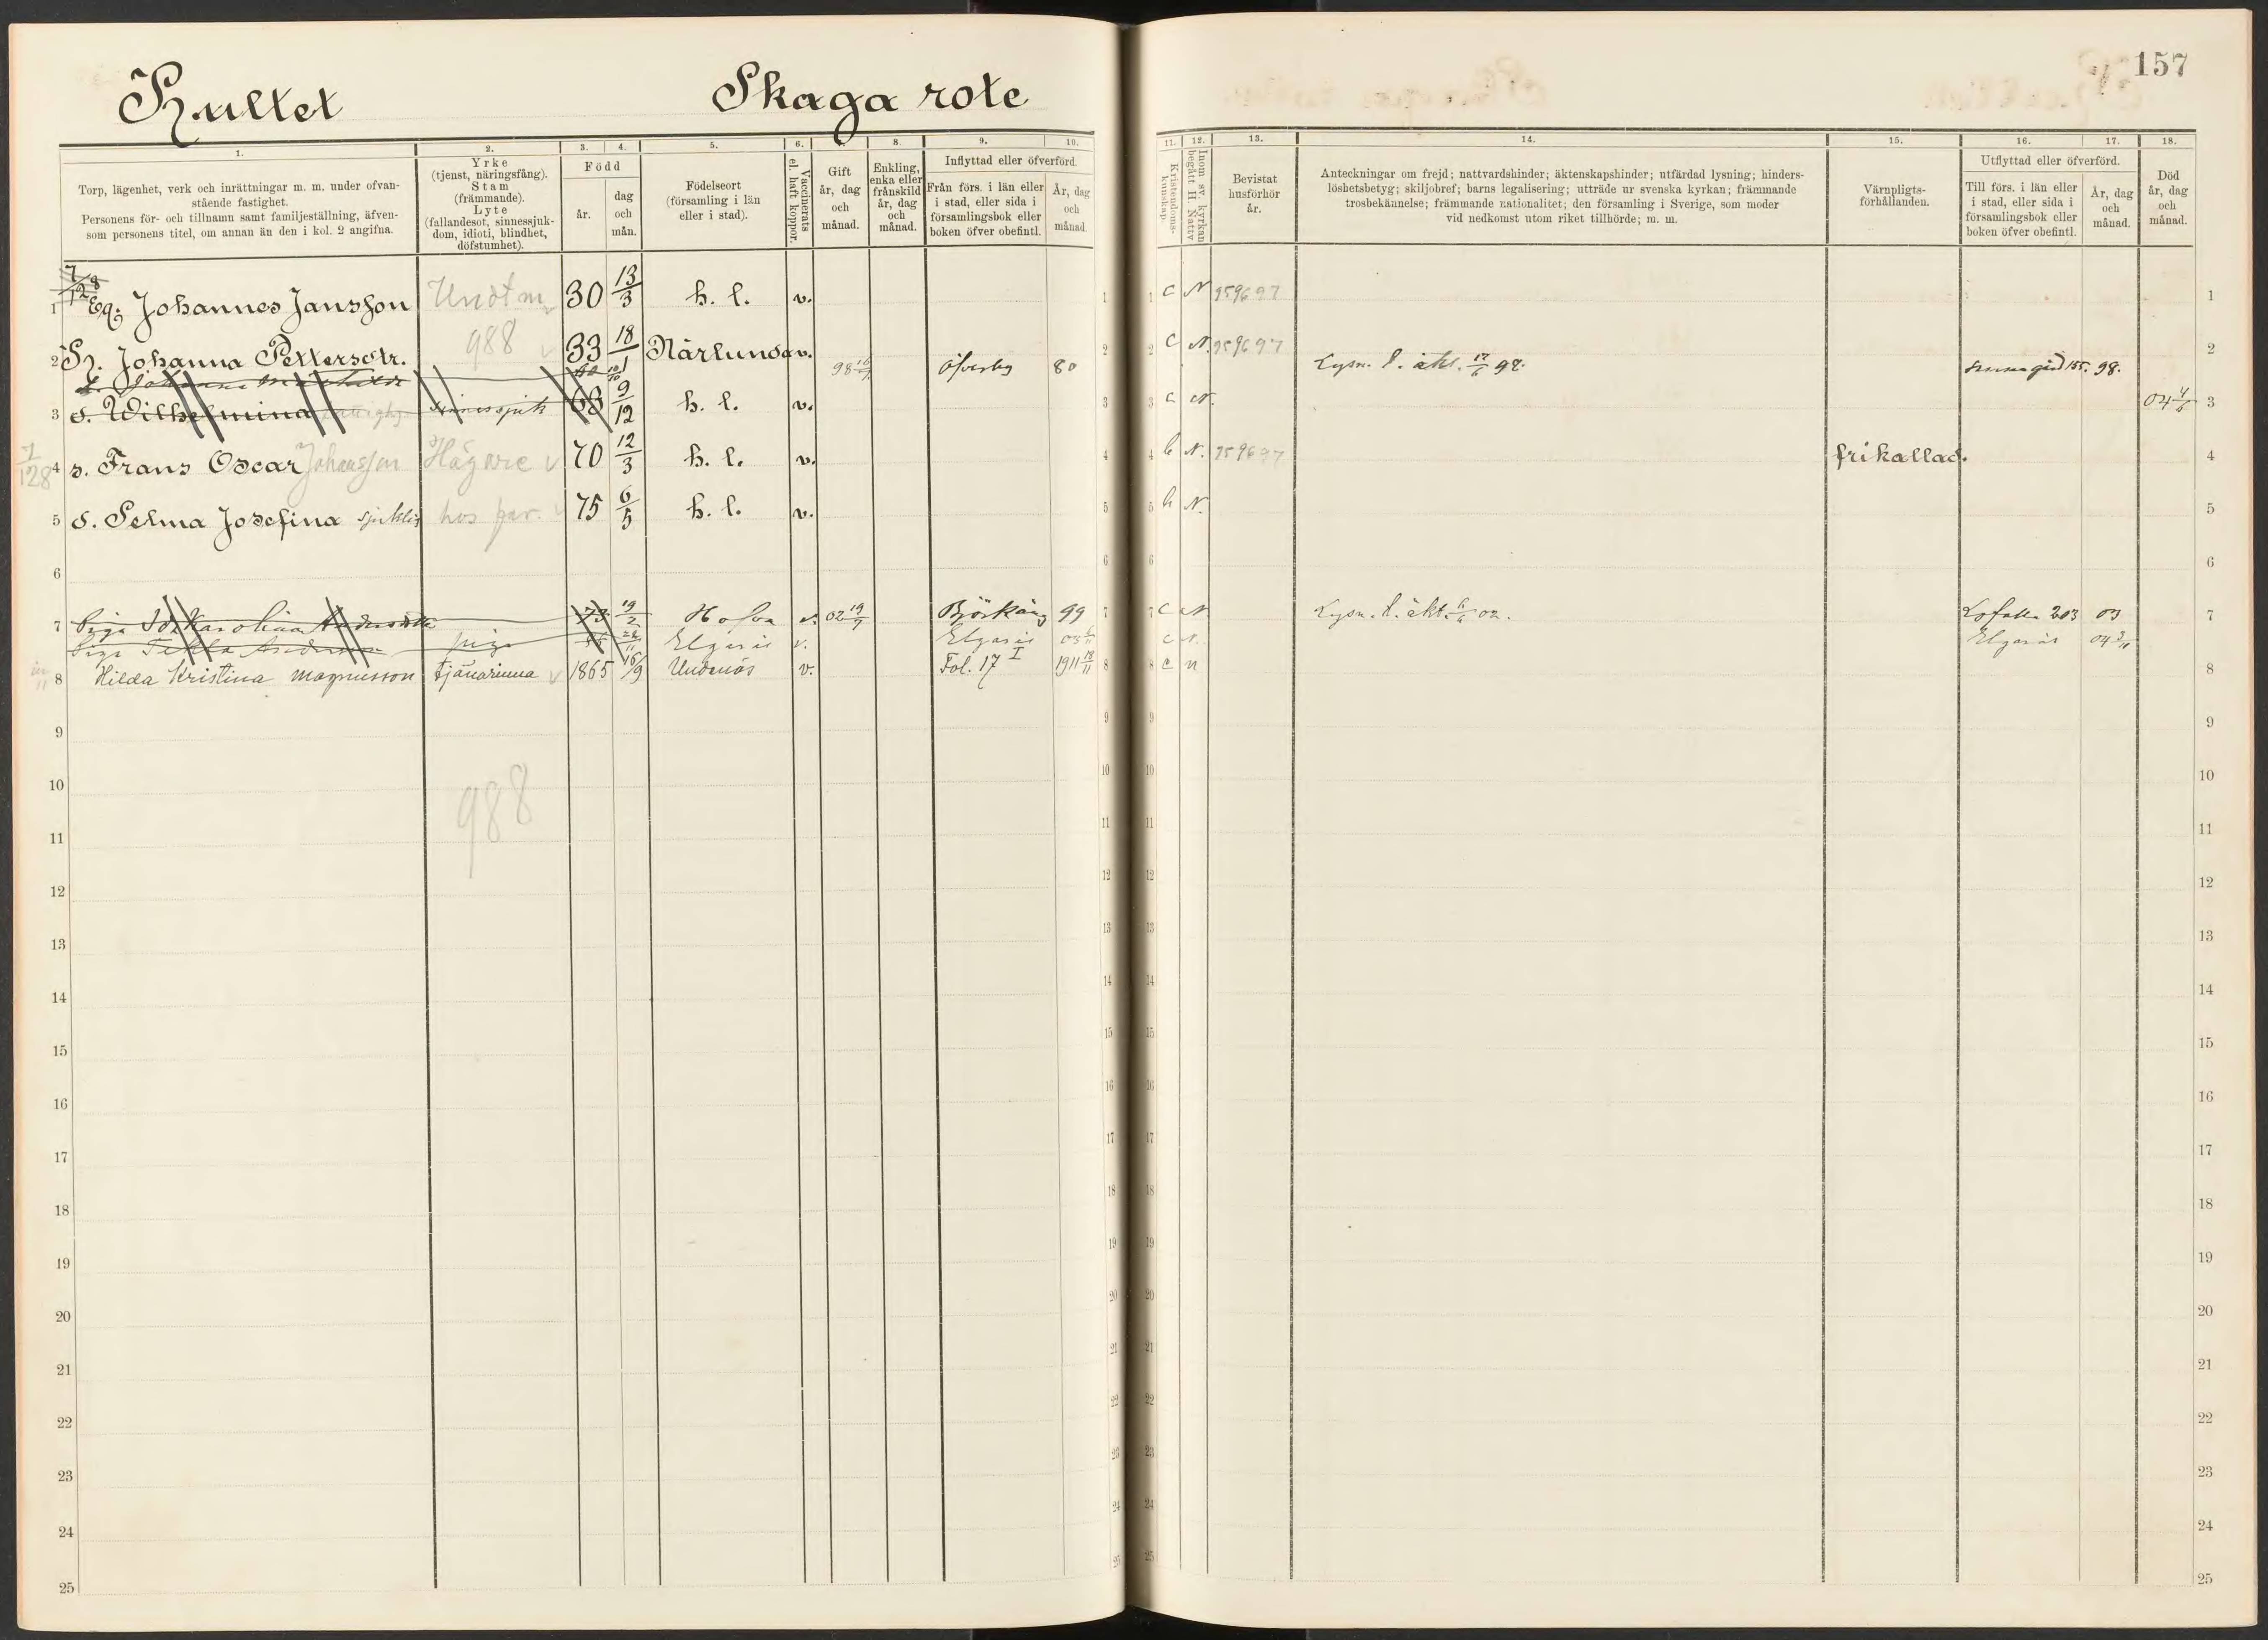 Kultet Skaga rote
157
1. 2. 3. 4. 5. 6. 8. 9. 10. 11. 12. 13. 14. 15. 16. 17. 18.
Torp, lägenhet, verk och inrättningar m. m. under ofvanstående fastighet.
Personens för- och tillnamn samt familjeställning, äfvensom personens titel, om annan än den i kol. 2 angifna.
Yrke (tjenst, näringsfång). Stam (främmande). Lyte (fallandesot, sinnessjukdom, idioti, blindhet, döfstumhet).
Född
år.
dag och mån.
Födelseort (församling i län eller i stad).
Vaccinerats el. haft koppor.
Gift år, dag och månad.
Enkling, enka eller frånskild år, dag och månad.
Inflyttad eller öfverförd.
Från förs. i län eller i stad, eller sida i församlingsbok eller boken öfver obefintl.
År, dag och månad.
Kristendomskunskap.
Inom sv. kyrkan begått H. Nattv
Bevistat husförhör år.
Anteckningar om frejd; nattvardshinder; äktenskapshinder; utfärdad lysning; hinderslöshetsbetyg; skiljobref; barns legalisering; utträde ur svenska kyrkan; främmande trosbekännelse; främmande nationalitet; den församling i Sverige, som moder vid nedkomst utom riket tillhörde; m. m.
Värnpligtsförhållanden.
Utflyttad eller öfverförd.
Till förs. i län eller i stad, eller sida i församlingsbok eller boken öfver obefintl.
År, dag och månad.
Död år, dag och månad.
1 Eg. Johannes Jansson Undtm 30 13/3 h. l. v. C N 959697
2 H. Johanna Pettersdtr. 988 33 18/1 Närlunda v. C N. 959697
Johanna Mathilda 98 Öfverby 80 Lysn. t. äkt. 17/6 98. 155. 98.
3 d. Wilhelmina sinnessjuk 68 9/12 h. l. v. C N. 04 4/6
4 7/128 s. Frans Oscar Johansson Hägare 70 12/3 h. l. v. b N. 959697 frikallad.
5 d. Selma Josefina sjuklig hos för. 75 6/5 h. l. v. N.
6
7 Piga Ida Karolina Andersdtr 73 19/2 Hofva v. 02 19/7 Björkäng 99 C N Lysn. t. äkt. 02. 203 03
Piga Tekla Andersson piga Elgarås v. Elgarås 03 C N. Elgarås 04
8 Hilda Kristina Magnusson tjänarinna 1865 16/9 Undenäs v. Fol. 17 I 1911 18/11 c n
9
10
988
11
12
13
14
15
16
17
18
19
20
21
22
23
24
25